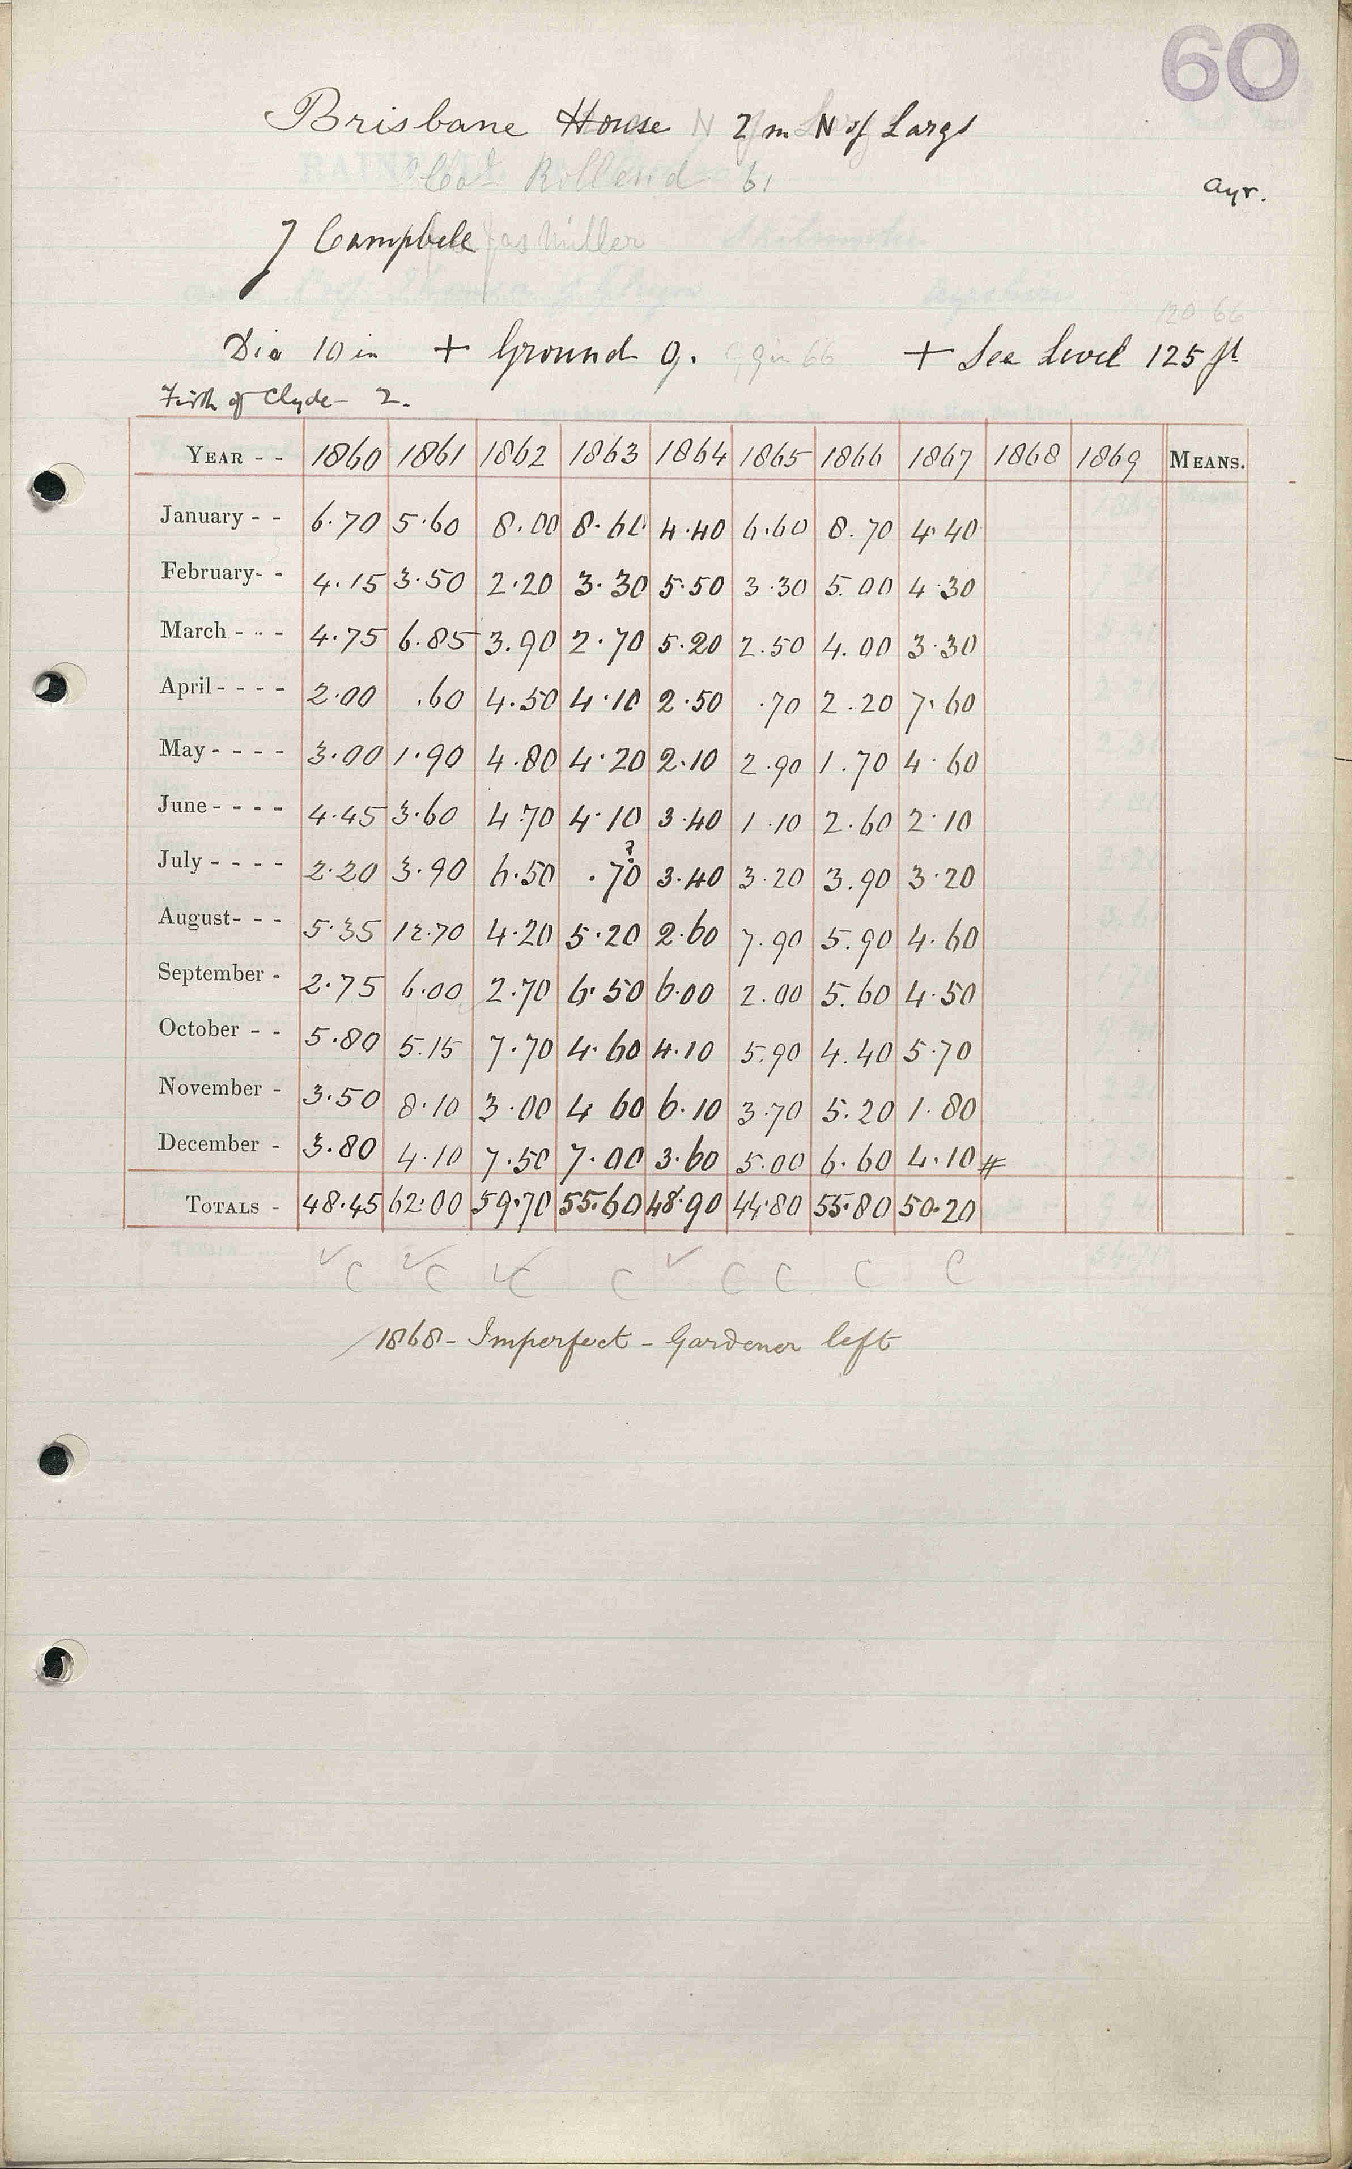 60
Brisbane House 2 m N of Largs
61
Ayr.
J Campbell Jas Miller
120 66
Dia 10 in + Ground 9. 9 in 66 + Sea Level 125 ft
Firth of Clyde - 2.
YEAR - - 1860 1861 1862 1863 1864 1865 1866 1867 1868 1869 MEANS.
January - - 6.70 5.60 8.00 8.60 4.40 6.60 8.70 4.40
February- - 4.15 3.50 2.20 3.30 5.50 3.30 5.00 4.30
March - - - 4.75 6.85 3.90 2.70 5.20 2.50 4.00 3.30
April - - - - 2.00 .60 4.50 4.10 2.50 .70 2.20 7.60
May - - - - 3.00 1.90 4.80 4.20 2.10 2.90 1.70 4.60
June - - - - 4.45 3.60 4.70 4.10 3.40 1.10 2.60 2.10
?
July - - - - 2.20 3.90 6.50 .70 3.40 3.20 3.90 3.20
August- - - 5.35 12.70 4.20 5.20 2.60 7.90 5.90 4.60
September - 2.75 6.00 2.70 6.50 6.00 2.00 5.60 4.50
October - - 5.80 5.15 7.70 4.60 4.10 5.90 4.40 5.70
November - 3.50 8.10 3.00 4.60 6.10 3.70 5.20 1.80
December - 3.80 4.10 7.50 7.00 3.60 5.00 6.60 4.10 #
TOTALS - 48.45 62.00 59.70 55.60 48.90 44.80 55.80 50.20
✓ C ✓ C ✓ C C ✓ C C C C
1868 - Imperfect - Gardener left